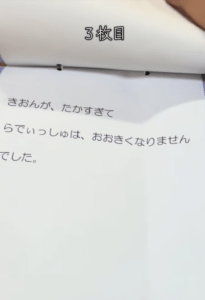 3枚目
きおんが、たかすぎて
らでぃっしゅは、おおきくなりません
でした。